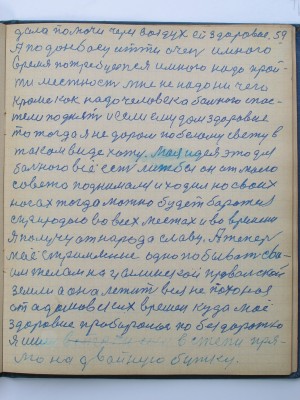 дала помочи через воздух ей здоровье. 59
А подонбасу итти очен и много
время потребуется и много надо прой-
ти местност мне не надо ни чего
кроме как надо человека болного пос-
тели поднят и если ему дам здоровье
то тогда я не даром по белому свету в
таком виде хожу. Моя идея это для
болного всё ест лиж бы он от моего
совета поднимался и ходил на своих
ногах тогда можно будет боротся
с природою во всех местах и во времени
Я получу от народа славу. А теперь
моё стремление одно побывать сво-
им телом на
земли а она лежит вся не тронутая
от адамовских времен куда моё
здоровие пробиралос по бездорожю
Я шол в степи пря-
мо на двойную бутку.